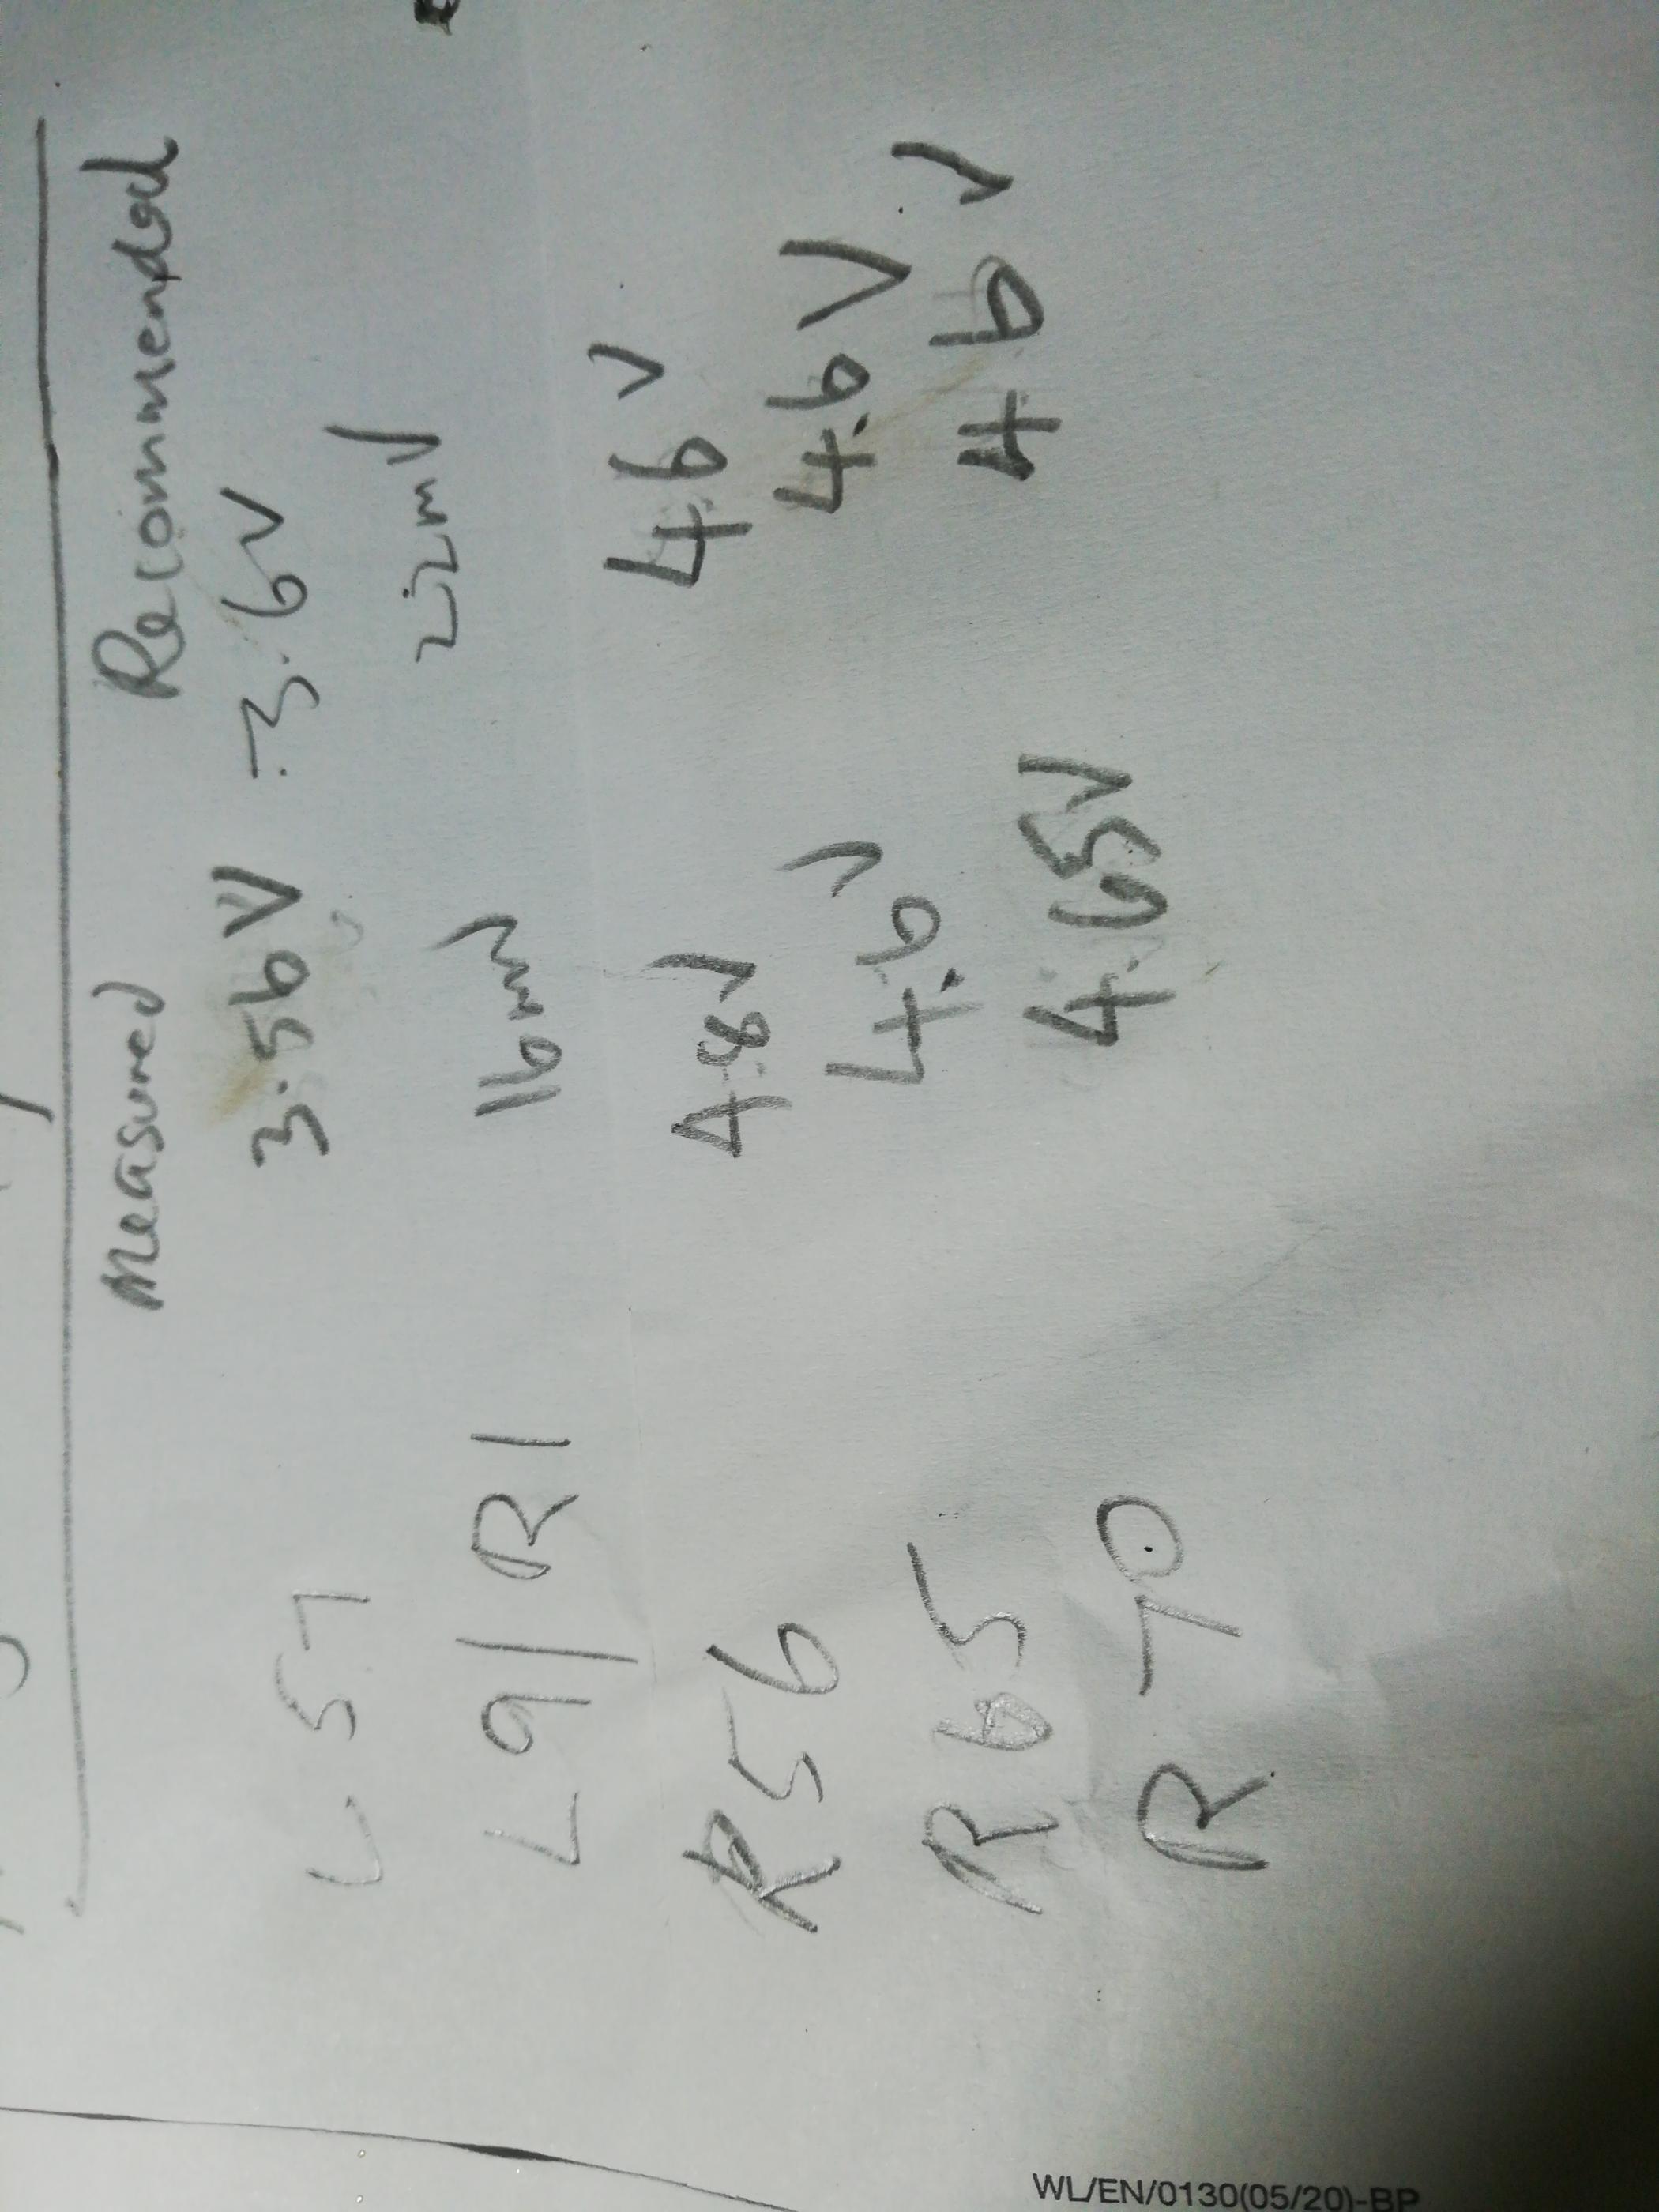 Measured Recommended
L57 3.56V 3.6V
L9/R1 16mV 22mV
R56 4.8V 4.6V
R65 4.6V 4.6V
R70 4.65V 4.6V
WL/EN/0130(05/20)-BP